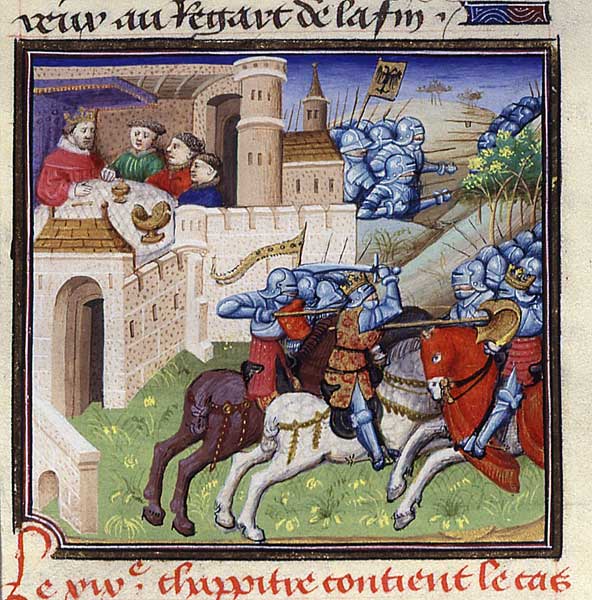 au Regart de la fin
Le chappitre contient le cas